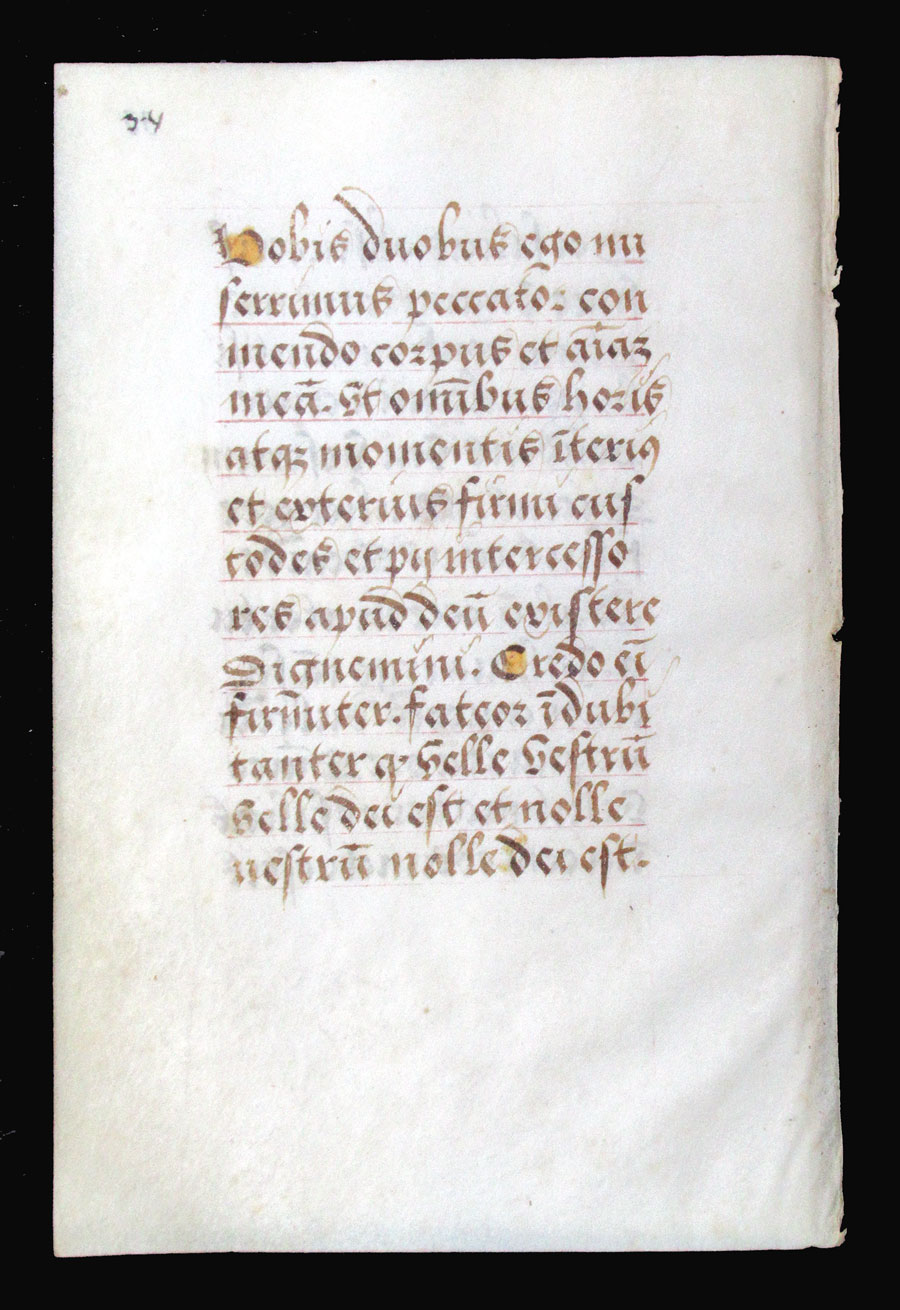 34
Vobis duobus ego mi
serrimus peccator con
mendo corpus et aīaz
meā. vt omībus horis
atqz momentis īteriꝯ
et exterius firmi cus
todes et pij intercesso
res apud deū existere
dignemini. Credo eī
firmiter. fateor īdubi
tanter ꝙ velle vestrū
velle dei est et nolle
uestrū nolle dei est.